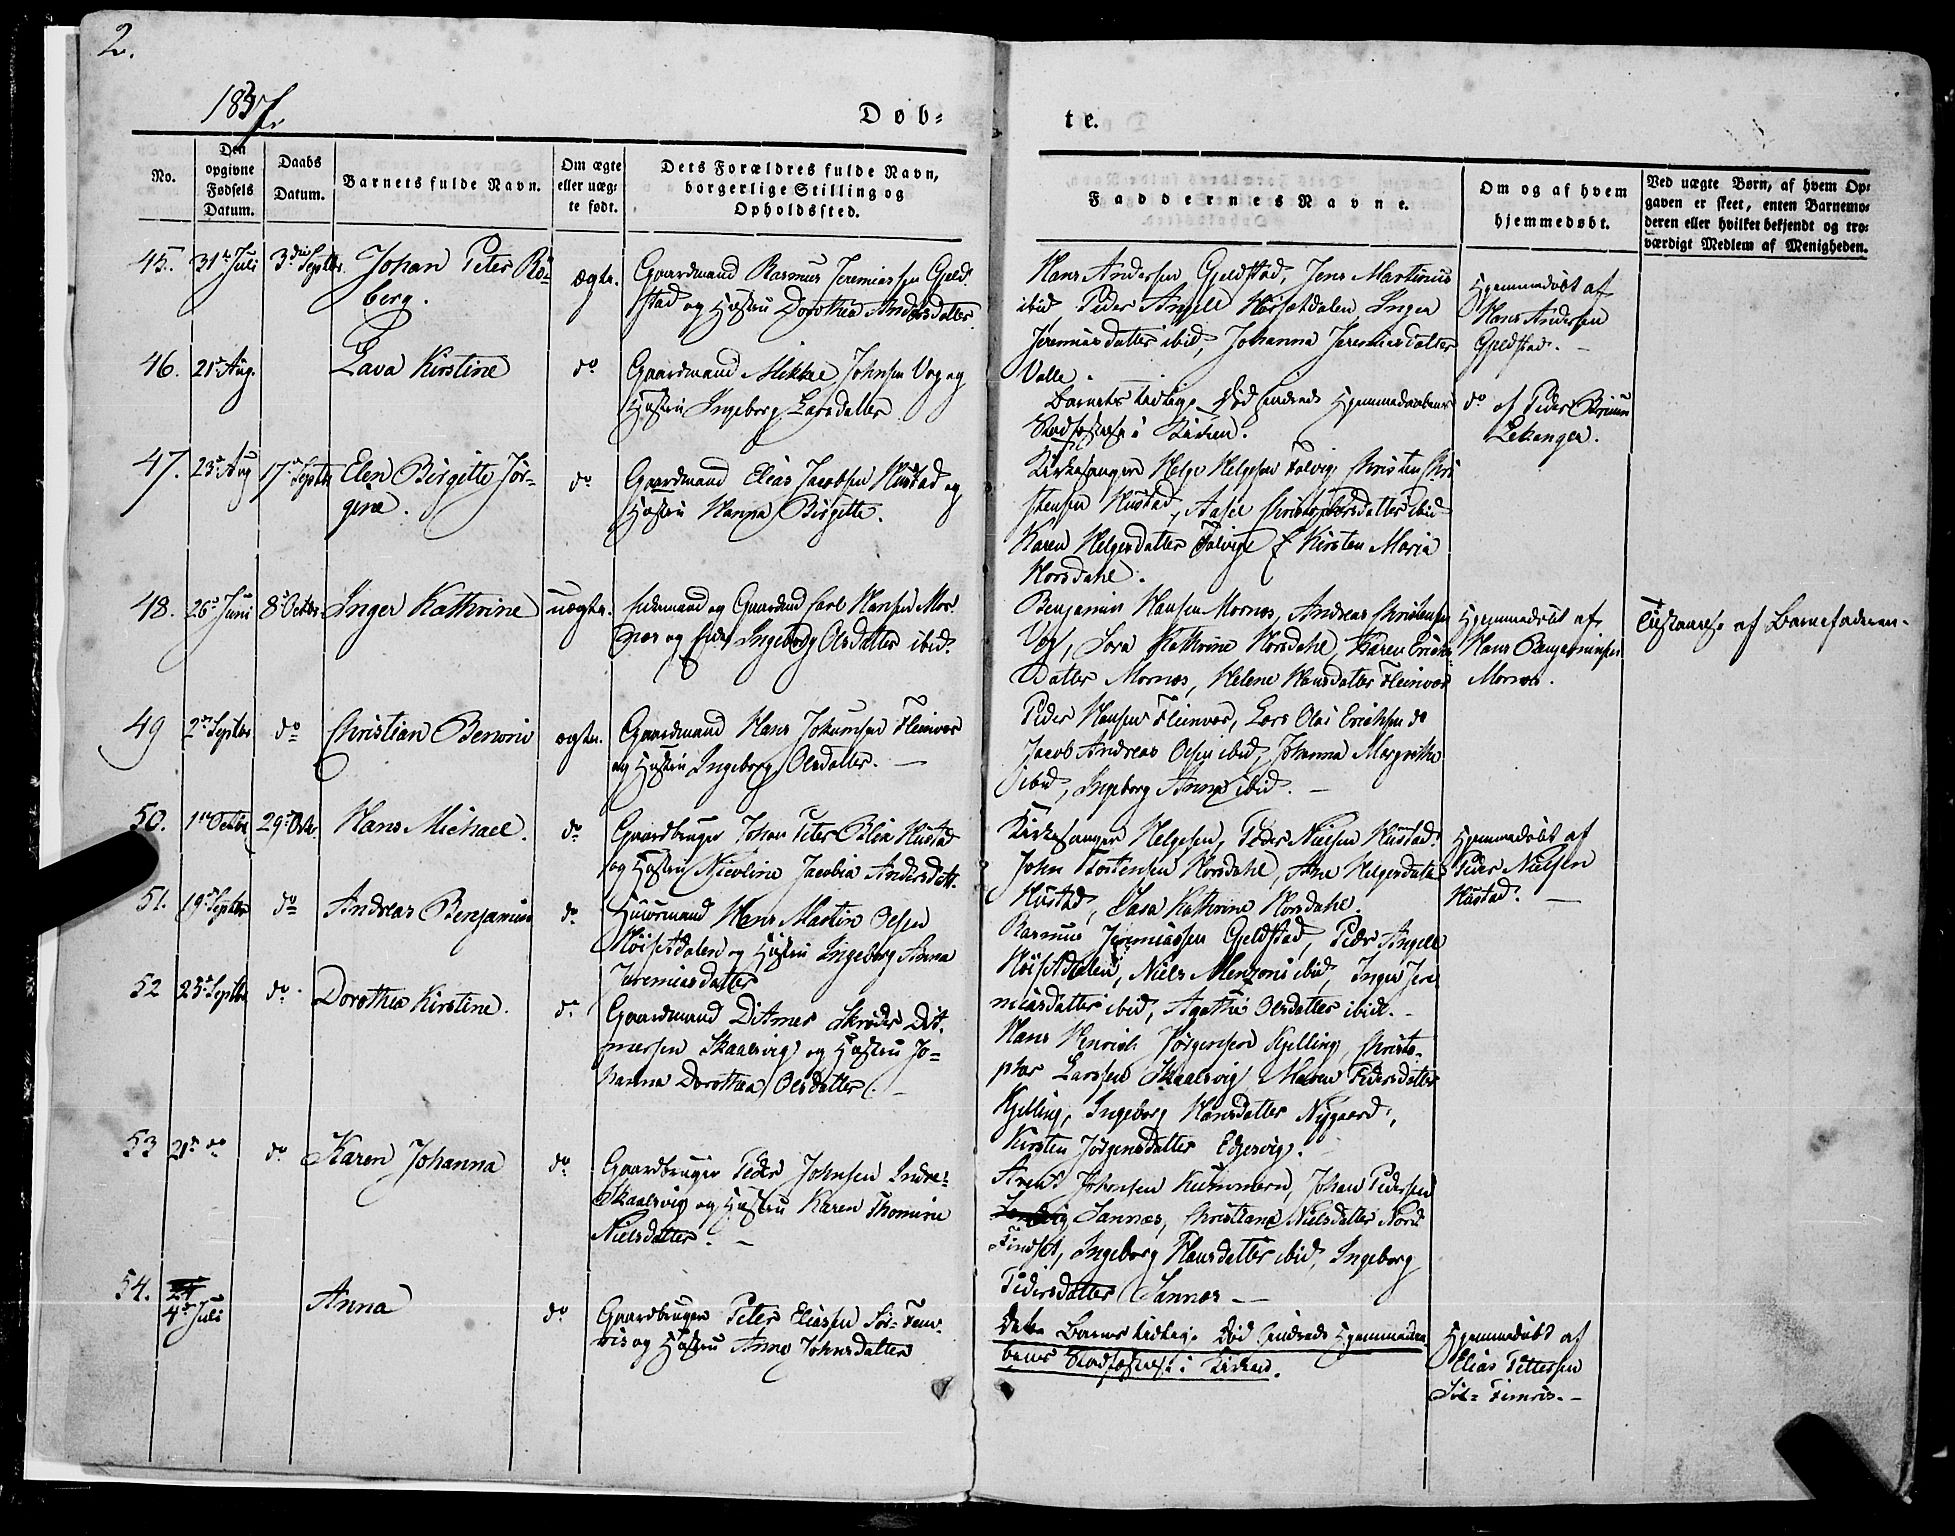 2.
1837.
Døb=
te.
No.
Den opgivne Fødsels Datum.
Daabs Datum.
Barnets fulde Navn.
Om ægte eller uæg= te født.
Dets Forældres fulde Navn, borgerlige Stilling og Opholdssted.
Faddernes Navne.
Om og af hvem hjemmedøbt.
Ved uægte Børn, af hvem Op= gaven er skeet, enten Barnemo= deren eller hvilket bekjendt og tro= værdigt Medlem af Menigheden.
45. 31te Juli 3die Septbr. Johan Peter Rö= ægte. Gaardmand Rasmus Jeremiassen Gjeld
berg.
stad og Hustru Dorothea Andersdatter
Hans Andersen Gjeldstad, Jens Martinus
ibid Peder Angell Inger
Jeremiasdatter ibid, Johanna Jeremiasdatter
Valle.
Hjemmedøbt af
Hans Andersen
Gjeldstad.
46. 21de Aug. Lava Kirstine do Gaardmand Mikkel Johnsen Vog og
Hustru Ingeborg Larsdatter
Barnets tidlige Død Hjemmedaabens
Stadfæstelse i Kirken.
do af Peder
Lekanger.
47. 23de Aug 17de Septbr Elen Birgitte Jör= do Gaardmand Elias Jacobsen Hustad og
gine.
Hustru Hanna Birgitte.
Kirkesanger Helge Helgesen Christen Chri
stensen Hustad, Christophersdatter ibid
Karen Helgesdatter & Kirsten Maria
Horsdahl.
48. 26de Juni 8de Octbr. Inger Kathrine uægte. og Carl Hansen Mor
næs og Ingeborg Olsdatter ibid.
Benjamin Hansen Mornæs, Andreas Christensen
Vog, Kathrine Horsdahl, Karen Erichs
datter Mornæs, Helene Hansdatter Fleinvær
Hjemmedøbt af
Hans Benjaminsen
Mornæs.
Tilstaaelse af Barnefaderen.
49 2den Septbr do Christian Benoni ægte. Gaardmand Hans Johnsen Fleinvær
og Hustru Ingeborg Olsdatter.
Peder Hansen Fleinvær, Lars Olai Erichsen do
Jacob Andreas Olsen ibid, Johanna Margrethe
ibid, Ingeborg Anna ibid.
50. 1ste Octbr 29de Octbr. Hans Michael. do Gaardbruger Johan Peter Hustad
og Hustru Nicoline Jacobia Andersdatt.
Kirkesanger Helgesen, Peder Nielsen Hustad
John Tostensen Horsdahl, Ane Helgesdatt
Hustad, Kathrine Horsdahl.
Hjemmedøbt af
Peder Nielsen
Hustad.
51. 19de Septbr do Andreas Benjamin do Huusmand Hans Martin Olsen
Høisetdalen og Hustru Ingeborg Anna
Jeremiasdatter
Rasmus Jeremiassen Gjeldstad, Peder Angell
Høisetdalen, Niels Menzoni ibid, Inger Jere
miasdatter ibid, Agathe Olsdatter ibid.
52 23de Septbr do Dorothea Kirstine. do Gaardmand Ditmer Schröder Dit
mersen Skaalsvig og Hustru Jo=
hanna Dorothea Olsdatter.
Hans Henrich Jörgensen Kjelling, Christo=
pher Larssen Skaalsvig, Maren Pedersdatter
Kjelling, Ingeborg Hansdatter Nygaard,
Kirsten Jörgensdatter
53 21de do do Karen Johanna do Gaardbruger Peder Johnsen Indre=
Skaalsvig og Hustru Karen Thomine
Nielsdatter.
Arent Johnsen Johan Pedersen
Sannæs, Christiane Nielsdatter Nord
Findset, Ingeborg Hansdatter ibid, Ingeborg
Pedersdatter Sannæs
54. 4de Juli Anna do Gaardbruger Peter Eliassen Sör=Fem=
ris og Hustru Anne Johnsdatter
Dette Barns tidlige Död Hjemmedaa
bens Stadfæstelse i Kirken.
Hjemmedøbt af
Elias Pettersen
Sör=Femris.